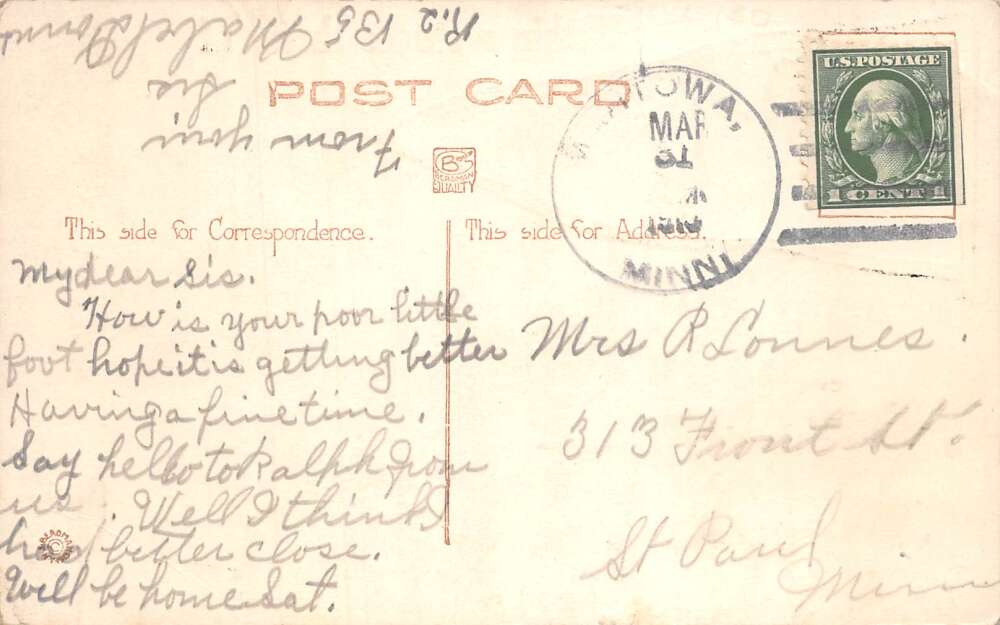 POST CARD
U.S. POSTAGE
1 CENT 1
TOWA,
MAR
31
MINN.
BS
BERGMAN
QUALITY
This side for Correspondence.
This side for Address.
My dear Sis.
How is your poor little
foot hope it is getting better
Having a fine time.
Say hello to Ralph from
us. Well I think I
had better close.
Will be home Sat.
From your
Sis
Mabel
R.2 135
Mrs R Lonnes.
313 Front St.
St Paul
Minn